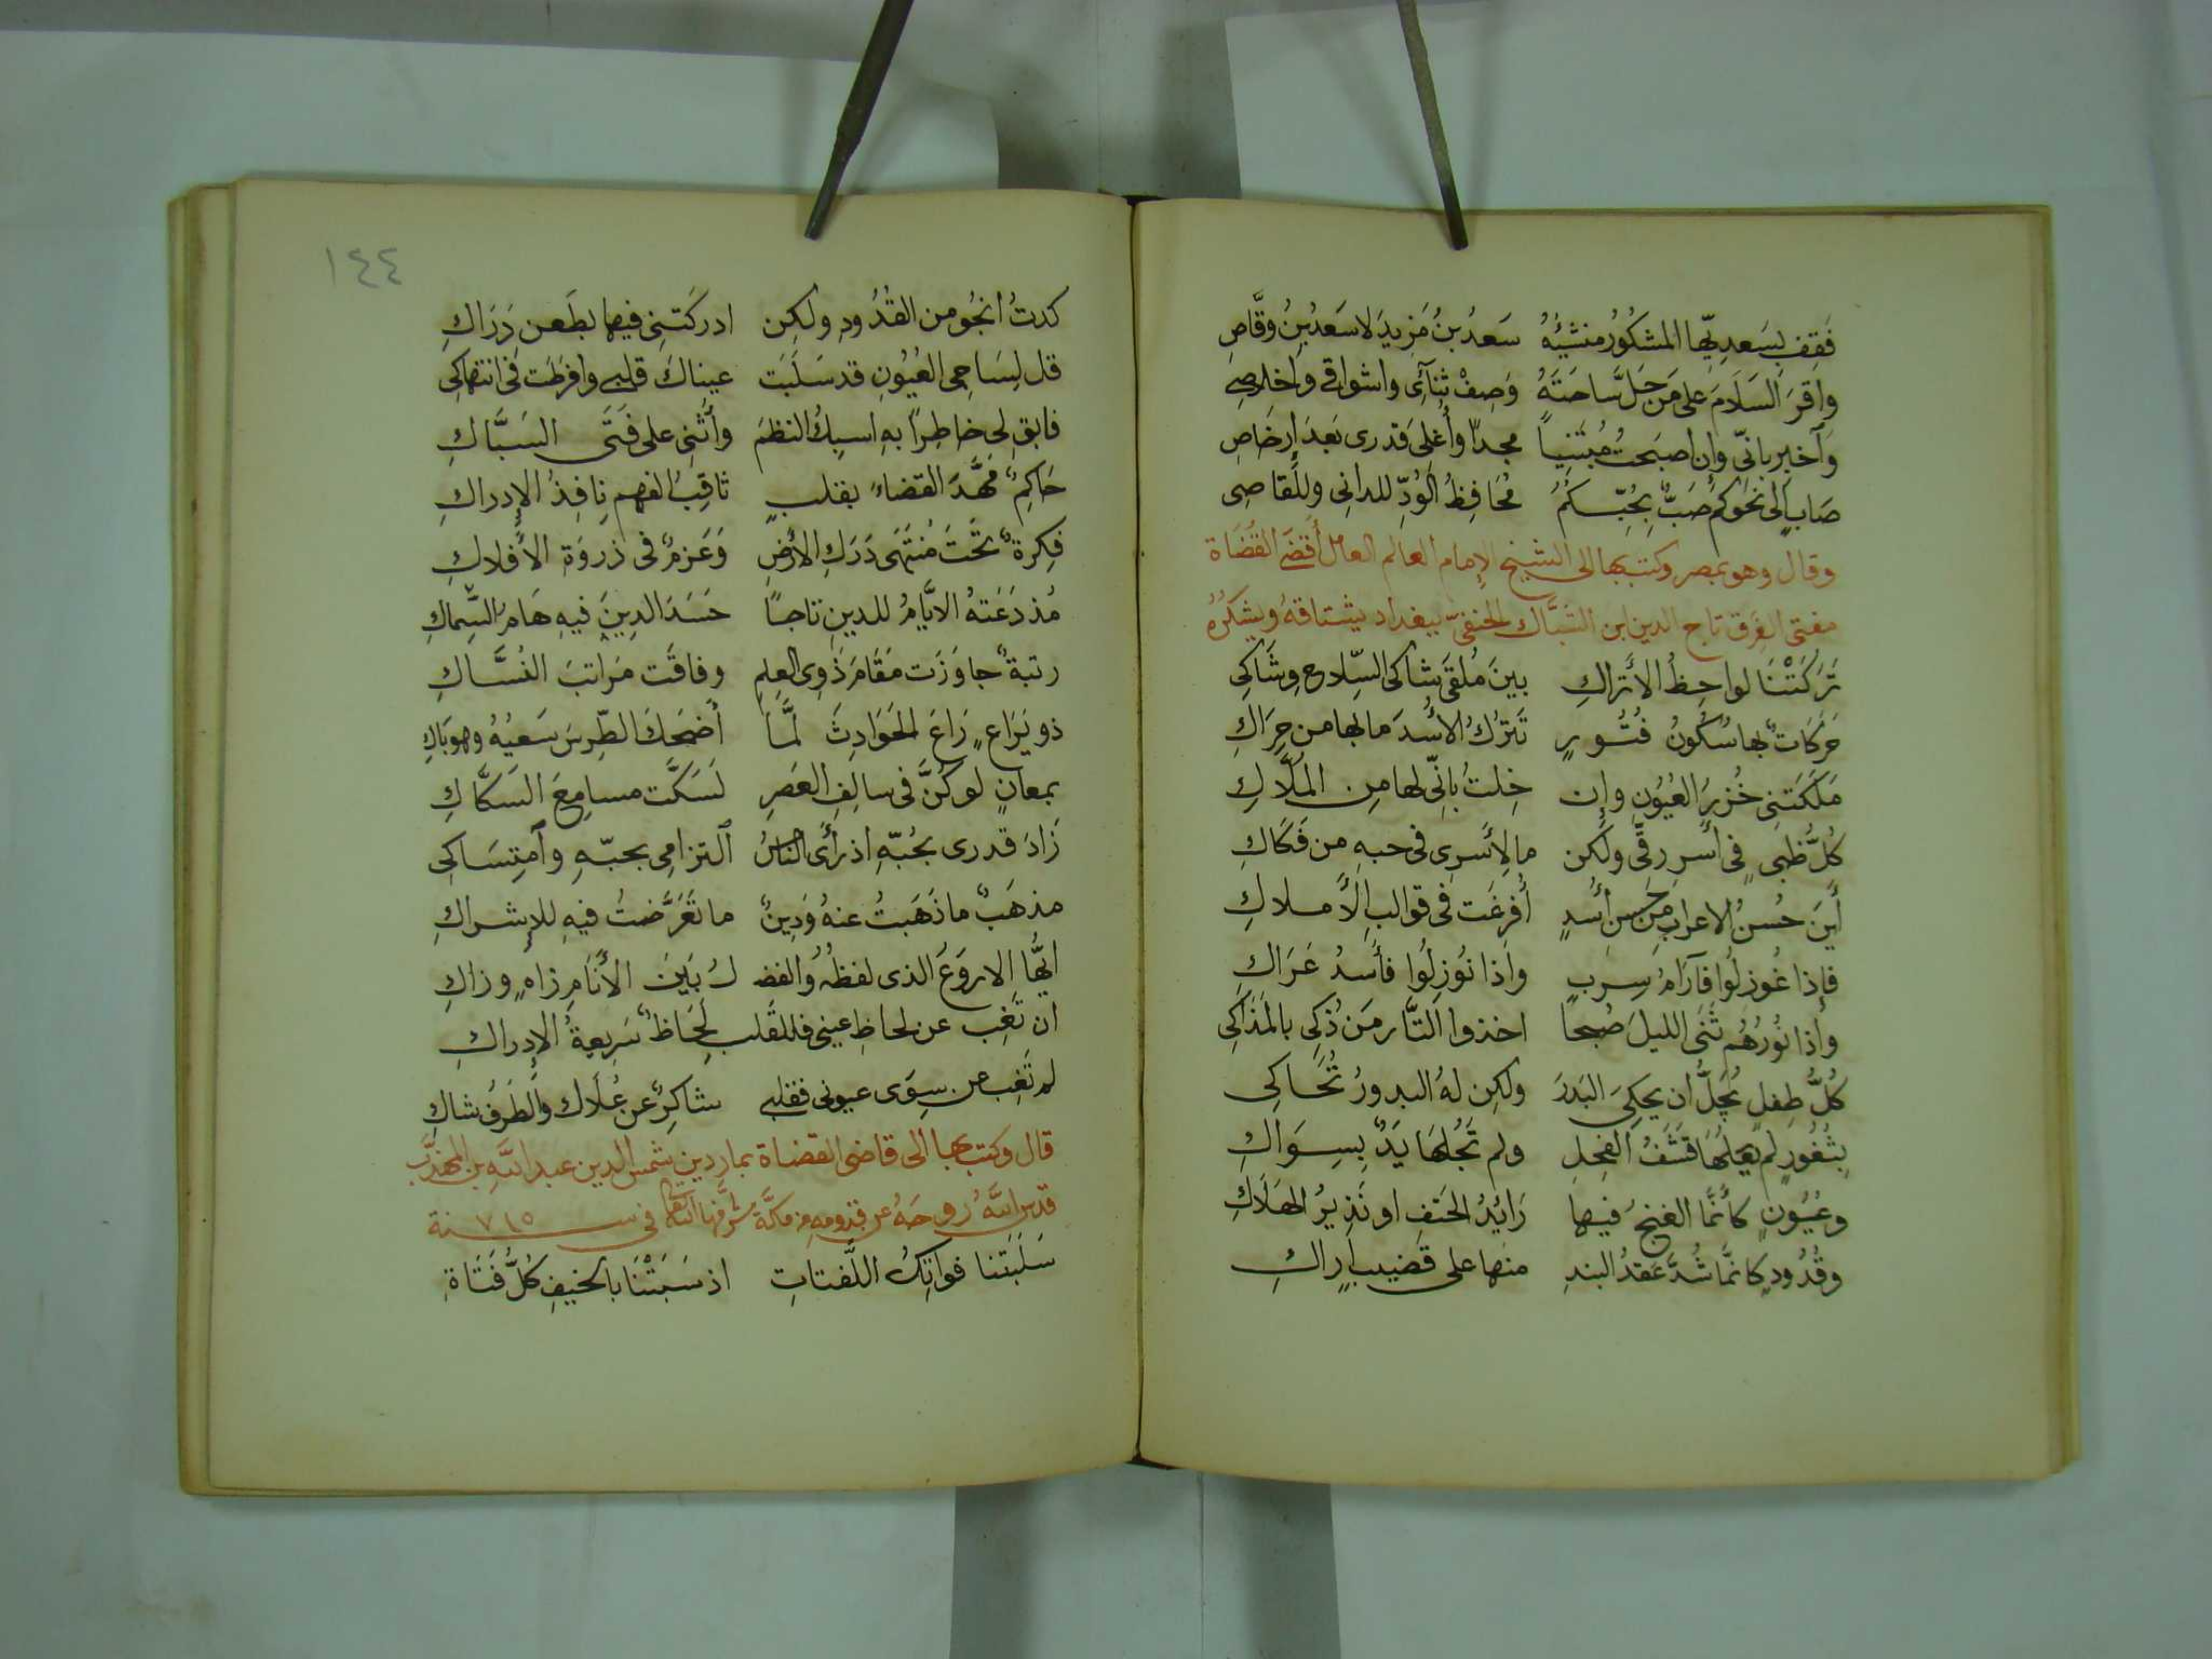 فَقِف بِسَعدِيِّها المشكُورُ منشِئُهُ سَعدُ بنُ مَزيدَ لا سَعدُ بنُ وقَّاصِ
واقرَ السَلَامَ على مَن حَلَّ سَاحَتَهُ وَصِفْ ثنِآئى واشواقى واخلاصِى
وَآخبِر بانِّى وان اصبَحتُ مُبتَنِياً مجداً واُغلِىَ قدرى بَعدَ اِرخَاصِ
صَابٍ الى نحوِكم صَبٌّ بِحُبِّكمُ مُحَافِظُ الوُدِّ للدانى وللقاصِى
وقال وهو بمصر وكتب بها الى الشيخ الإمام العالم العامل أقضَى القُضَاة
مفتى الفِرَق تاج الدين ابن السَّبَّاك الحنفىّ ببغداد يشتاقهُ ويشكُرُه
تَرَكَتْنَا لواحِظُ الأَتراكِ بينَ مُلقَى شاكى السِّلاحِ وشَاكِى
حَرَكَاتٌ بها سُكُونُ فُتُورٍ تَترُكُ الاُسْدَ ما لها من حِرَاكِ
مَلَكَتنِى خُزرُ العُيُونِ وإن خِلتُ بانِّى لها مِن المُلَّاكِ
كُلُّ ظَبىٍ فى أَسرِ رِقِّى ولكن ما لِأَسرِى فى حبهِ من فَكَاكِ
أَينَ حُسنُ الاعرابِ مِن حُسنِ أُسْدٍ أُفرِغَت فى قوالبِ الأَملاكِ
فإذا غُوزِلُوا فآرَامُ سِربٍ واذا نُوزِلُوا فأُسدُ عَرَاكِ
واذا نُورُهُم ثَنَى الليلَ صُبحاً اخذوا الثَّار مَن ذُكِى بالمَذَاكِى
كُلُّ طِفلٍ يُجَلُّ ان يحكىَ البَدرَ ولكِن لهُ البدورُ تُحَاكِى
بِثُغُورٍ لم يَعلُهَا قَشَفُ الفِحلِ ولم تَجلُهَا يَدٌ بِسِوَاكِ
وعُيُونٍ كأَنَّما الغنجُ فيها رَائِدُ الحَتفِ او نَذيرُ الهَلَاكِ
وقُدُودٍ كانَّما شُدَّ عَقدُ البندِ منها على قَضيبِ اَراكِ
١٤٤
كدتُ انجُو من القُدُودِ ولكِن ادركَتنِى فيها بطَعنٍ دَرَاكِ
قل لِسَاجِى العُيُونِ قد سَلَبَت عيناكَ قلبى وافرَطَت فى انتهاكِى
فابقِ لى خاطِراً بهِ اسبِكُ النظمَ واُثنِى على فَتَى السَبَّاكِ
حَاكِمٌ مَهَّدَ القضاءَ بقلبٍ ثاقِبِ الفهمِ نافِذُ الإدراكِ
فِكرةٌ تحَتَ مُنتَهَى دَرَكِ الأرضِ وَعَزمٌ فى ذروَة الأفلاكِ
مُذ دَعَتهُ الايَّامُ للدينِ تاجاً حَسَدَ الدينَ فيهِ هَامُ السِّماكِ
رتبةٌ جاوَزَت مَقَامَ ذَوِى العِلمِ وفاقَت مَراتبَ النُسَّاكِ
ذو يَرَاعٍ رَاعَ الحَوَادِثَ لَمَّا أَضحَكَ الطِّرسَ سَعيُهُ وهو بَاكِ
بمعانٍ لو كُنَّ فى سالِفِ العَصرِ لَسَكَّت مسامِعَ السَكَّاكِ
زَادَ قدرى بحُبّهِ اذ رأَى الناسُ التزامِى بحبّهِ وآمتِسَاكِى
مذهَبٌ ما ذَهَبتُ عنهُ وَدِينٌ ما تَعَرَّضتُ فيهِ للإشراكِ
ايُّها الاروَعُ الذى لفظُهُ والفضـ ـلُ بَينَ الأنَامِ زاهٍ وزاكِ
ان تَغِب عن لحاظِ عينى فللقَلبِ لِحَاظٌ سَرِيعةُ الإدراكِ
لم تَغِب عن سِوَى عيونى فقلبى شاكِرٌ عن عُلَاك والطَرفُ شاكِ
قال وكتب بها الى قاضى القضاة بماردين شمس الدين عبد الله بن المهذَّب
قدس اللهُ رُوحَهُ عن قدومهِ من مكَّة شرَّفها الله تعالى فى سـ ٧١٥ ـنة
سَلَبَتنا فواتِكُ اللَّفتاتِ اذ سَبَتْنَا بالخيفِ كُلُّ فَتَاةِ